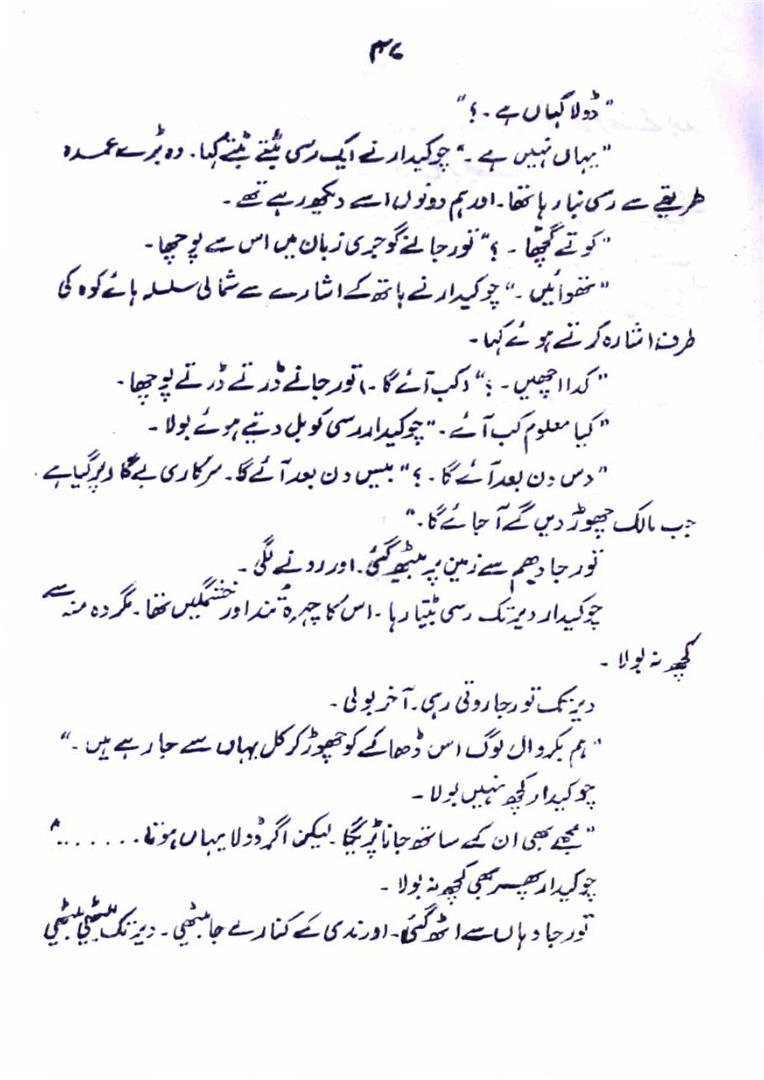 ۳۶
"ڈولا کہاں ہے۔؟"
"یہاں نہیں ہے۔" چوکیدار نے ایک رسی بٹتے بٹتے کہا۔ وہ بڑے عمدہ
طریقے سے رسی بنا رہا تھا۔ اور ہم دونوں اسے دیکھ رہے تھے۔
"کوتے گچھّا۔؟" تورجا نے گوجری زبان میں اس سے پوچھا۔
"نتھوائیں۔" چوکیدار نے ہاتھ کے اشارے سے شمالی سلسلہ ہائے کوہ کی
طرف اشارہ کرتے ہوئے کہا۔
"کدا اچھیں۔؟" (کب آئے گا۔) تورجا نے ڈرتے ڈرتے پوچھا۔
"کیا معلوم کب آئے۔" چوکیدار رسی کو بل دیتے ہوئے بولا۔
"دس دن بعد آئے گا۔؟" بیس دن بعد آئے گا۔ سرکاری بے گار پر گیا ہے۔
جب مالک چھوڑ دیں گے آ جائے گا۔"
تورجا دھم سے زمین پر بیٹھ گئی۔ اور رونے لگی۔
چوکیدار دیر تک رسی بٹتا رہا۔ اس کا چہرہ تُند اور خشمگیں تھا۔ مگر وہ منہ سے
کچھ نہ بولا۔
دیر تک تورجا روتی رہی۔ آخر بولی۔
"ہم بکروال لوگ اس ڈھاکے کو چھوڑ کر کل یہاں سے جا رہے ہیں۔"
چوکیدار کچھ نہیں بولا۔
"مجھے بھی ان کے ساتھ جانا پڑیگا۔ لیکن اگر ڈولا یہاں ہوتا......."
چوکیدار پھر بھی کچھ نہ بولا۔
تورجا وہاں سے اٹھ گئی۔ اور ندی کے کنارے جا بیٹھی۔ دیر تک بیٹھی بیٹھی